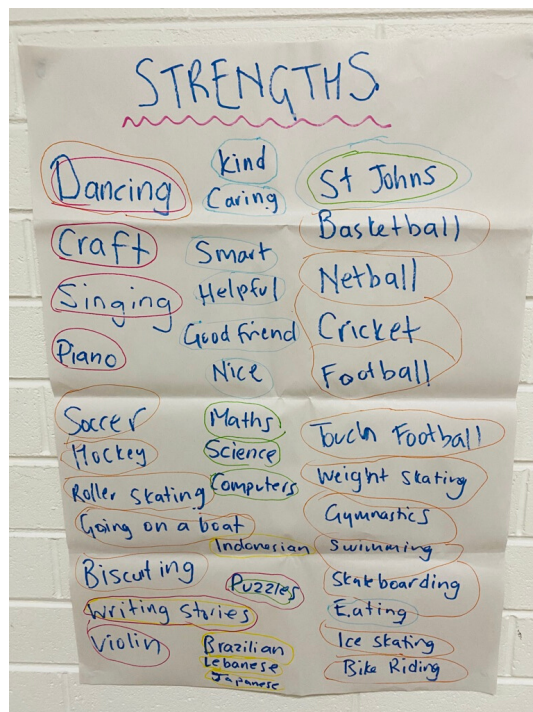 STRENGTHS
Dancing
Craft
Singing
Piano
Soccer
Hockey
Roller skating
Going on a boat
Biscuiting
Writing stories
Violin
kind
Caring
Smart
Helpful
Good friend
Nice
Maths
Science
Computers
Indonesian
Puzzles
Brazilian
Lebanese
Japanese
St Johns
Basketball
Netball
Cricket
Football
Touch Football
Weight skating
Gymnastics
Swimming
Skateboarding
Eating
Ice skating
Bike Riding